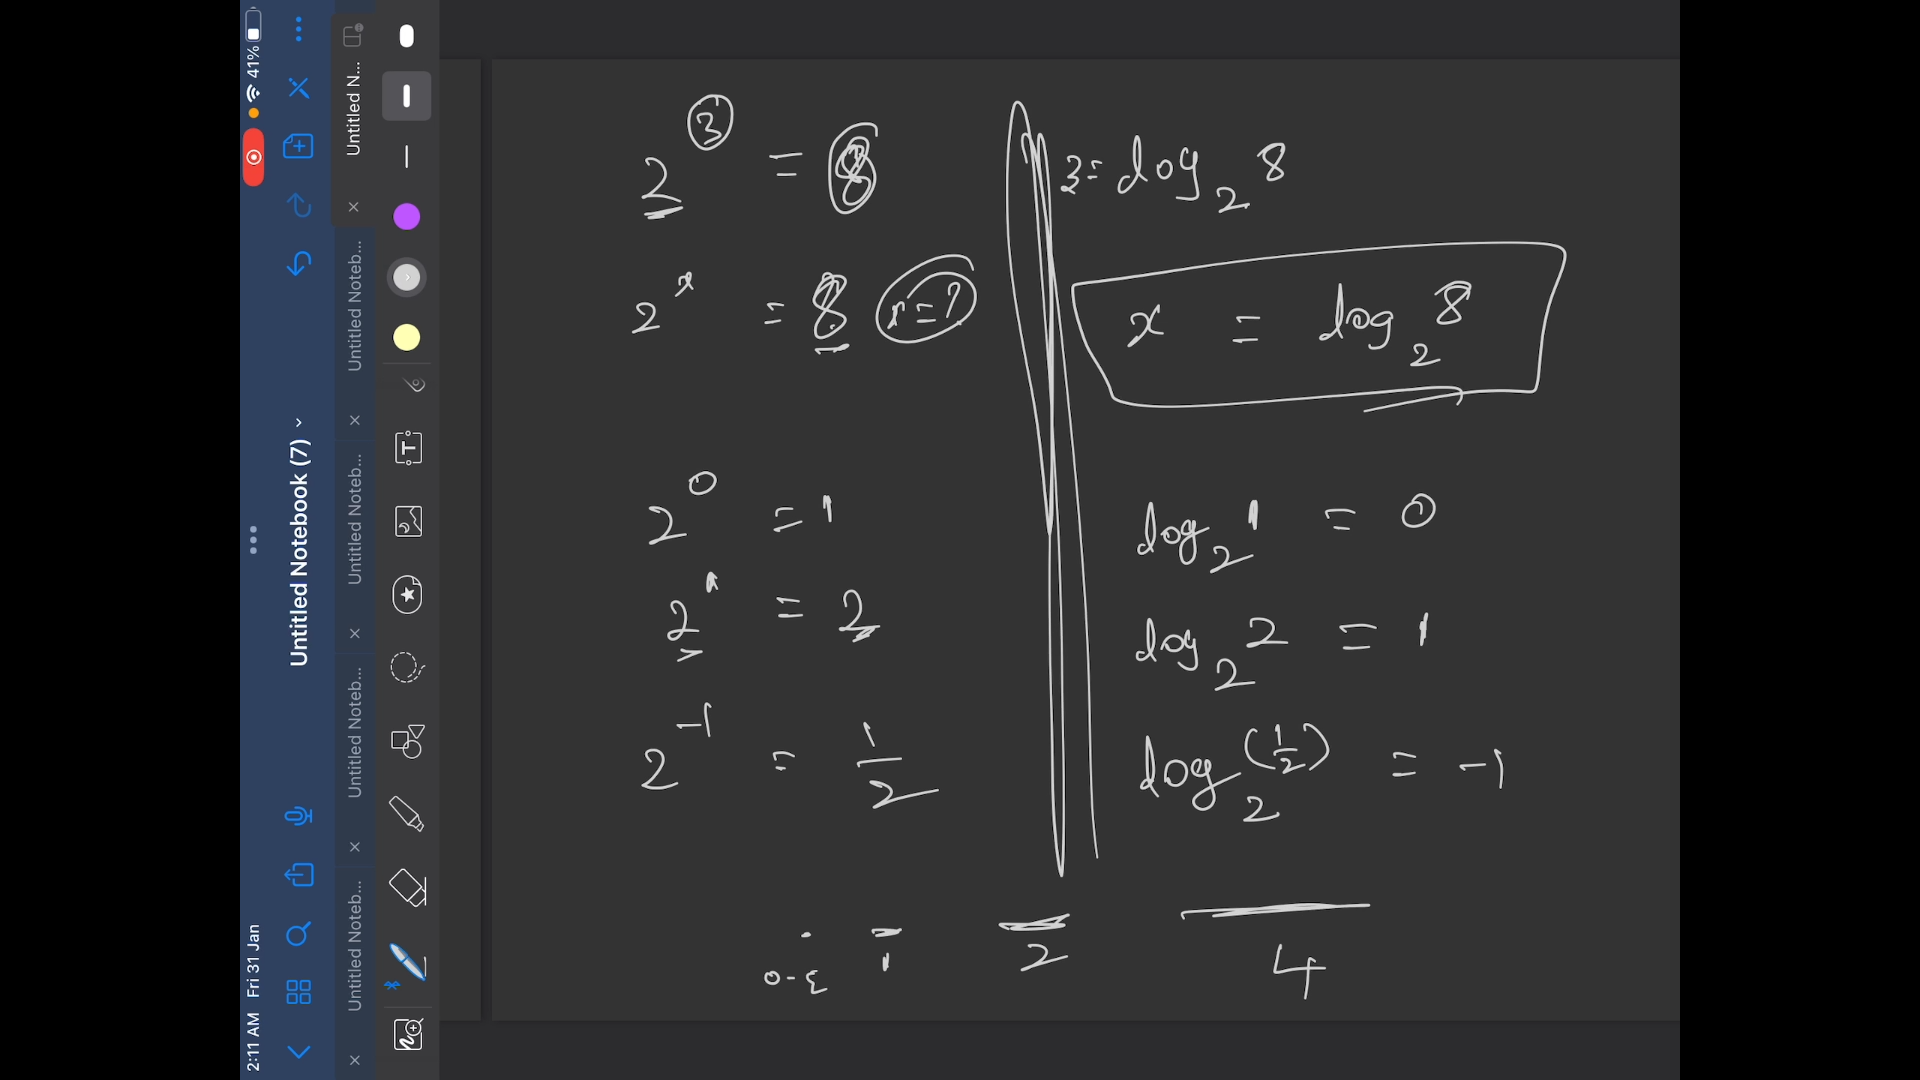 2:11 AM Fri 31 Jan
41%
Untitled Notebook (7)
Untitled N...
Untitled Noteb...
Untitled Noteb...
Untitled Noteb...
Untitled Noteb...
2³ = 8
3 = log₂ 8
2ˣ = 8 x=?
x = log₂ 8
2⁰ = 1
log₂ 1 = 0
2¹ = 2
log₂ 2 = 1
2⁻¹ = 1/2
log₂ (1/2) = -1
1
2
4